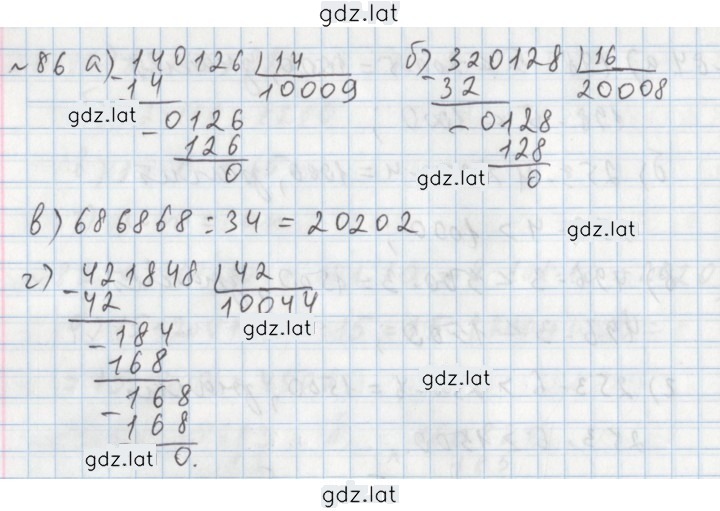 gdz.lat
№86 а) 140126 14 б) 320128 16
14 10009 32 20008
gdz.lat 0126 0128
126 128
0 gdz.lat 0
в) 686868 : 34 = 20202 gdz.lat
г) 421848 42
42 10044
184 gdz.lat
168 gdz.lat
168
168
gdz.lat 0.
gdz.lat